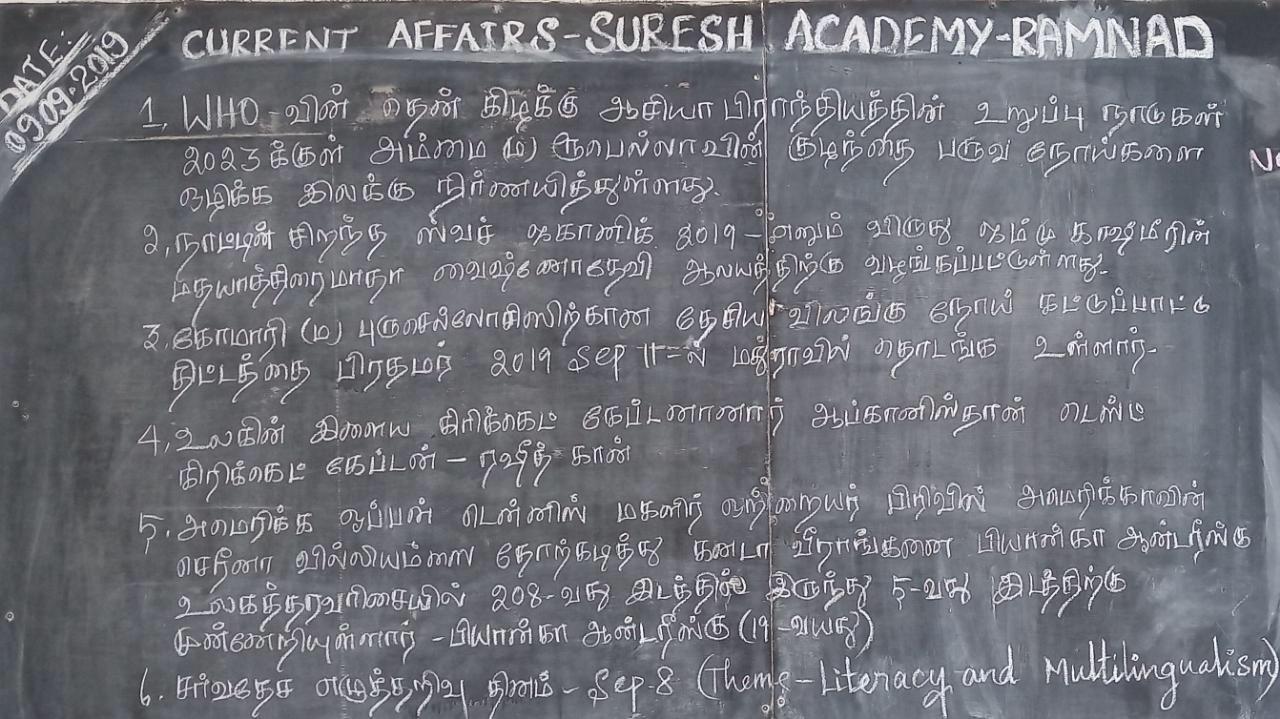 DATE:
09.09.2019
CURRENT AFFAIRS-SURESH ACADEMY-RAMNAD
1, WHO-வின் தென் கிழக்கு ஆசியா பிராந்தியத்தின் உறுப்பு நாடுகள்
2023க்குள் அம்மை (ம) ரூபெல்லாவின் குழந்தை பருவ நோய்களை
ஒழிக்க இலக்கு நிர்ணயித்துள்ளது.
2, நாட்டின் சிறந்த ஸ்வச் ஐகானிக் 2019-எனும் விருது ஜம்மு காஷ்மீரின்
மதயாத்திரைமாதா வைஷ்ணோதேவி ஆலயத்திற்கு வழங்கப்பட்டுள்ளது.
3, கோமாரி (ம) புருசெல்லோசிஸிற்கான தேசிய விலங்கு நோய் கட்டுப்பாட்டு
திட்டத்தை பிரதமர் 2019 Sep 11-ல் மதுராவில் தொடங்க உள்ளார்.
4, உலகின் இளைய கிரிக்கெட் கேப்டனானார் ஆப்கானிஸ்தான் டெஸ்ட்
கிரிக்கெட் கேப்டன் - ரஷீத் கான்
5. அமெரிக்க ஓப்பன் டென்னிஸ் மகளிர் ஒற்றையர் பிரிவில் அமெரிக்காவின்
செரீனா வில்லியம்ஸை தோற்கடித்து கனடா வீராங்கனை பியான்கா ஆண்டரீஸ்கு
உலகத்தரவரிசையில் 208-வது இடத்தில் இருந்து 5-வது இடத்திற்கு
முன்னேறியுள்ளார் - பியான்கா ஆண்டரீஸ்கு (19-வயது)
6. சர்வதேச எழுத்தறிவு தினம் - Sep-8 (Theme-Literacy and Multilingualism)